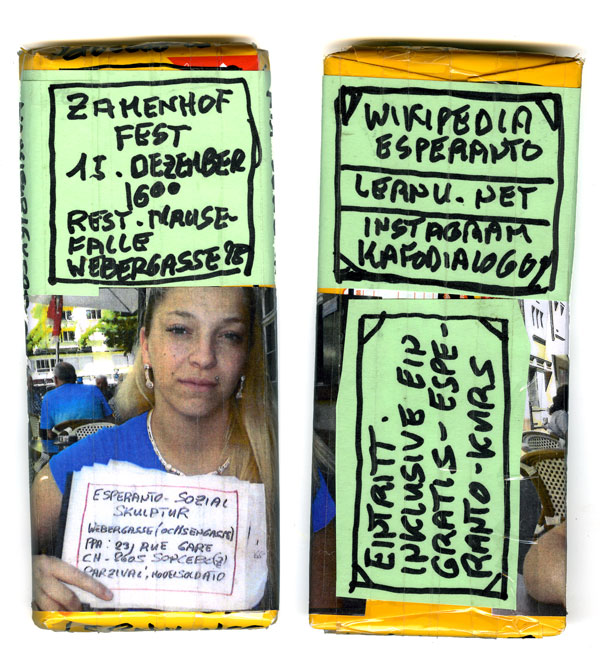 ZAMENHOF
FEST
15. DEZEMBER
16⁰⁰
REST. MAUSE-
FALLE
WEBERGASSE
ESPERANTO-SOZIAL
SKULPTUR
WEBERGASSE (OCHSENGASSE)
RUE GARE
PARZIVAL, NOVELSOLDATO
WIKIPEDIA
ESPERANTO
LERNU.NET
INSTAGRAM
KAFODIALOGOJ
EINTRITT.
INKLUSIVE EIN
GRATIS-ESPE-
RANTO-KURS